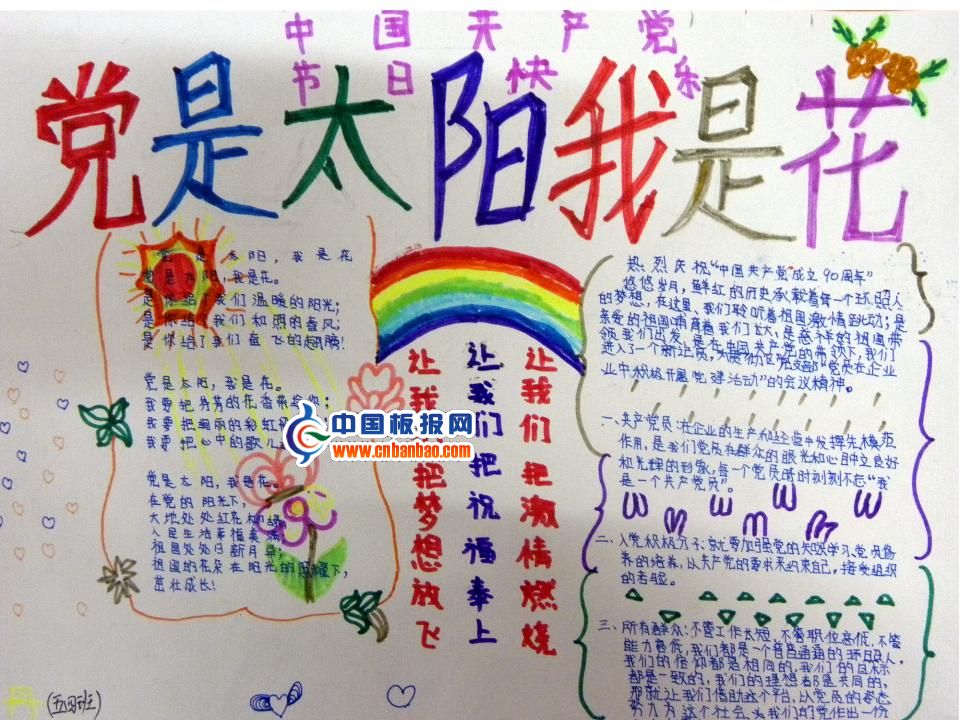 中国共产党
节日快乐
党是太阳我是花
党是太阳，我是花
党是太阳，我是花。
是你给了我们温暖的阳光；
是你给了我们和煦的春风；
是你给了我们奋飞的翅膀！
党是太阳，我是花。
我要把芬芳的花香带给你；
我要把绚丽的彩虹
我要把心中的歌儿
党是太阳，我是花。
在党的阳光下，
大地处处红花柳绿，
人民生活幸福美满；
祖国处处日新月异；
祖国的花朵在阳光的照耀下，
茁壮成长！
让我们把梦想放飞
让我们把祝福奉上
让我们把激情燃烧
中国板报网
www.cnbanbao.com
热烈庆祝“中国共产党成立90周年”
悠悠岁月，鲜红的历史承载着每一个环照人
的梦想，在这里，我们聆听着祖国激情跳动；是
亲爱的祖国哺育着我们长大，是慈祥的祖国带
领我们出发，是在中国共产党的带领下，我们
进入了一个新纪元，支部“党员在企业
业中积极开展党建活动”的会议精神。
一、共产党员：在企业的生产和经营中发挥先模范
作用，是我们党员在群众的眼光和心目中立良好
和光辉的形象，每一个党员时时刻刻不忘“我
是一个共产党员”。
二、入党积极分子：就要加强党的知识学习，党员修
养的培养，以共产党的要求来约束自己，接受组织
的考验。
三、所有群众：不管工作长短，不管职位高低，不管
能力高低，我们都是一个普普通通的环照人，
我们的信仰都是相同的，我们的目标
都是一致的，我们的理想都是共同的，
那就让我们借助这个平台，以党员的姿态
努力为这个社会、为我们的党作出一份
(五.四班)